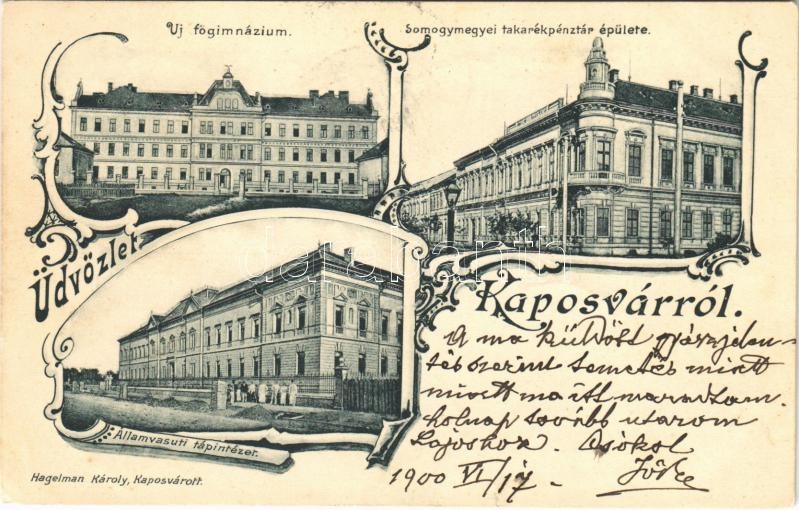 Uj főgimnázium.
Somogymegyei takarékpénztár épülete.
Üdvözlet
Kaposvárról.
A ma küldött gyászjelen-
tés szerint temetés miatt
miatt ma itt maradtam.
holnap tovább utazom
Lajoshoz. Csókol
1900 VI/17.
Államvasuti tápintézet.
Hagelman Károly, Kaposvárott.